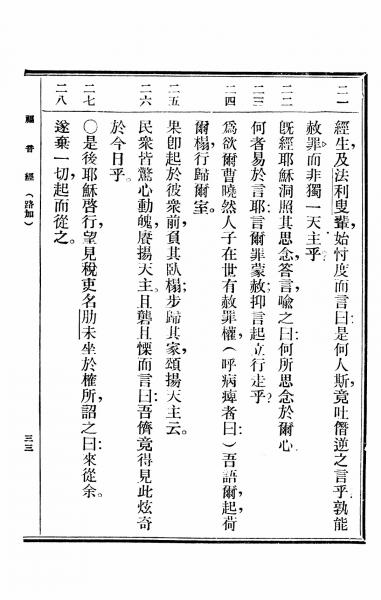 二一
經生，及法利叟輩，始忖度而言曰：是何人斯，竟吐僭逆之言乎，孰能
赦罪而非獨一天主乎？
二二
旣經耶穌洞照其思念，答言，喩之曰：何所思念於爾心，
二三
何者易於言耶，言爾罪蒙赦，抑言起立行走乎？
二四
爲欲爾曹曉然人子在世有赦罪權，（呼病痺者曰：）吾語爾，起，荷
爾榻，行歸爾室。
二五
果卽起於彼衆前，負其臥榻；步歸其家，頌揚天主云。
二六
民衆皆驚心動魄，賡揚天主。且讋且慄而言曰：吾儕竟得見此炫奇
於今日乎。
二七
〇是後耶穌啓行，望見稅吏名肋未坐於榷所，詔之曰：來從余。
二八
遂棄一切，起而從之。
福音經（路加）
三三